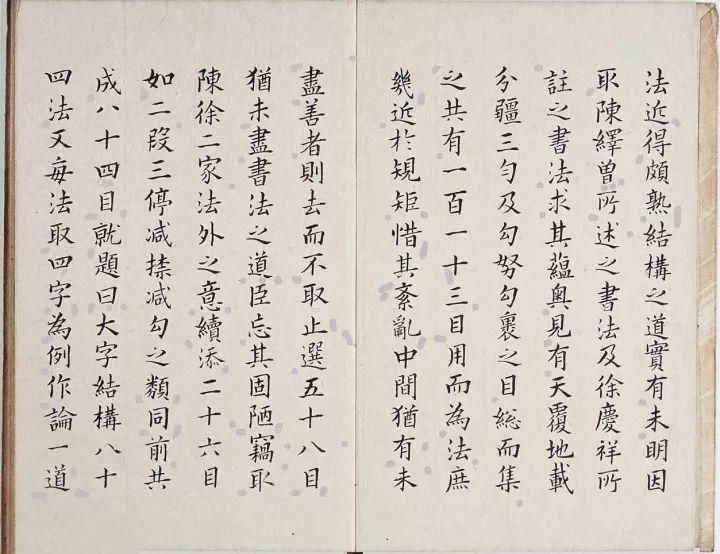 法近得頗熟結構之道實有未明因
取陳繹曾所述之書法及徐慶祥所
註之書法求其蘊奧見有天覆地載
分疆三勻及勾努勾裹之目総而集
之共有一百一十三目用而為法庶
幾近於規矩惜其紊亂中間猶有未
盡善者則去而不取止選五十八目
猶未盡書法之道臣忘其固陋竊取
陳徐二家法外之意續添二十六目
如二段三停減捺減勾之類同前共
成八十四目就題曰大字結構八十
四法又每法取四字為例作論一道